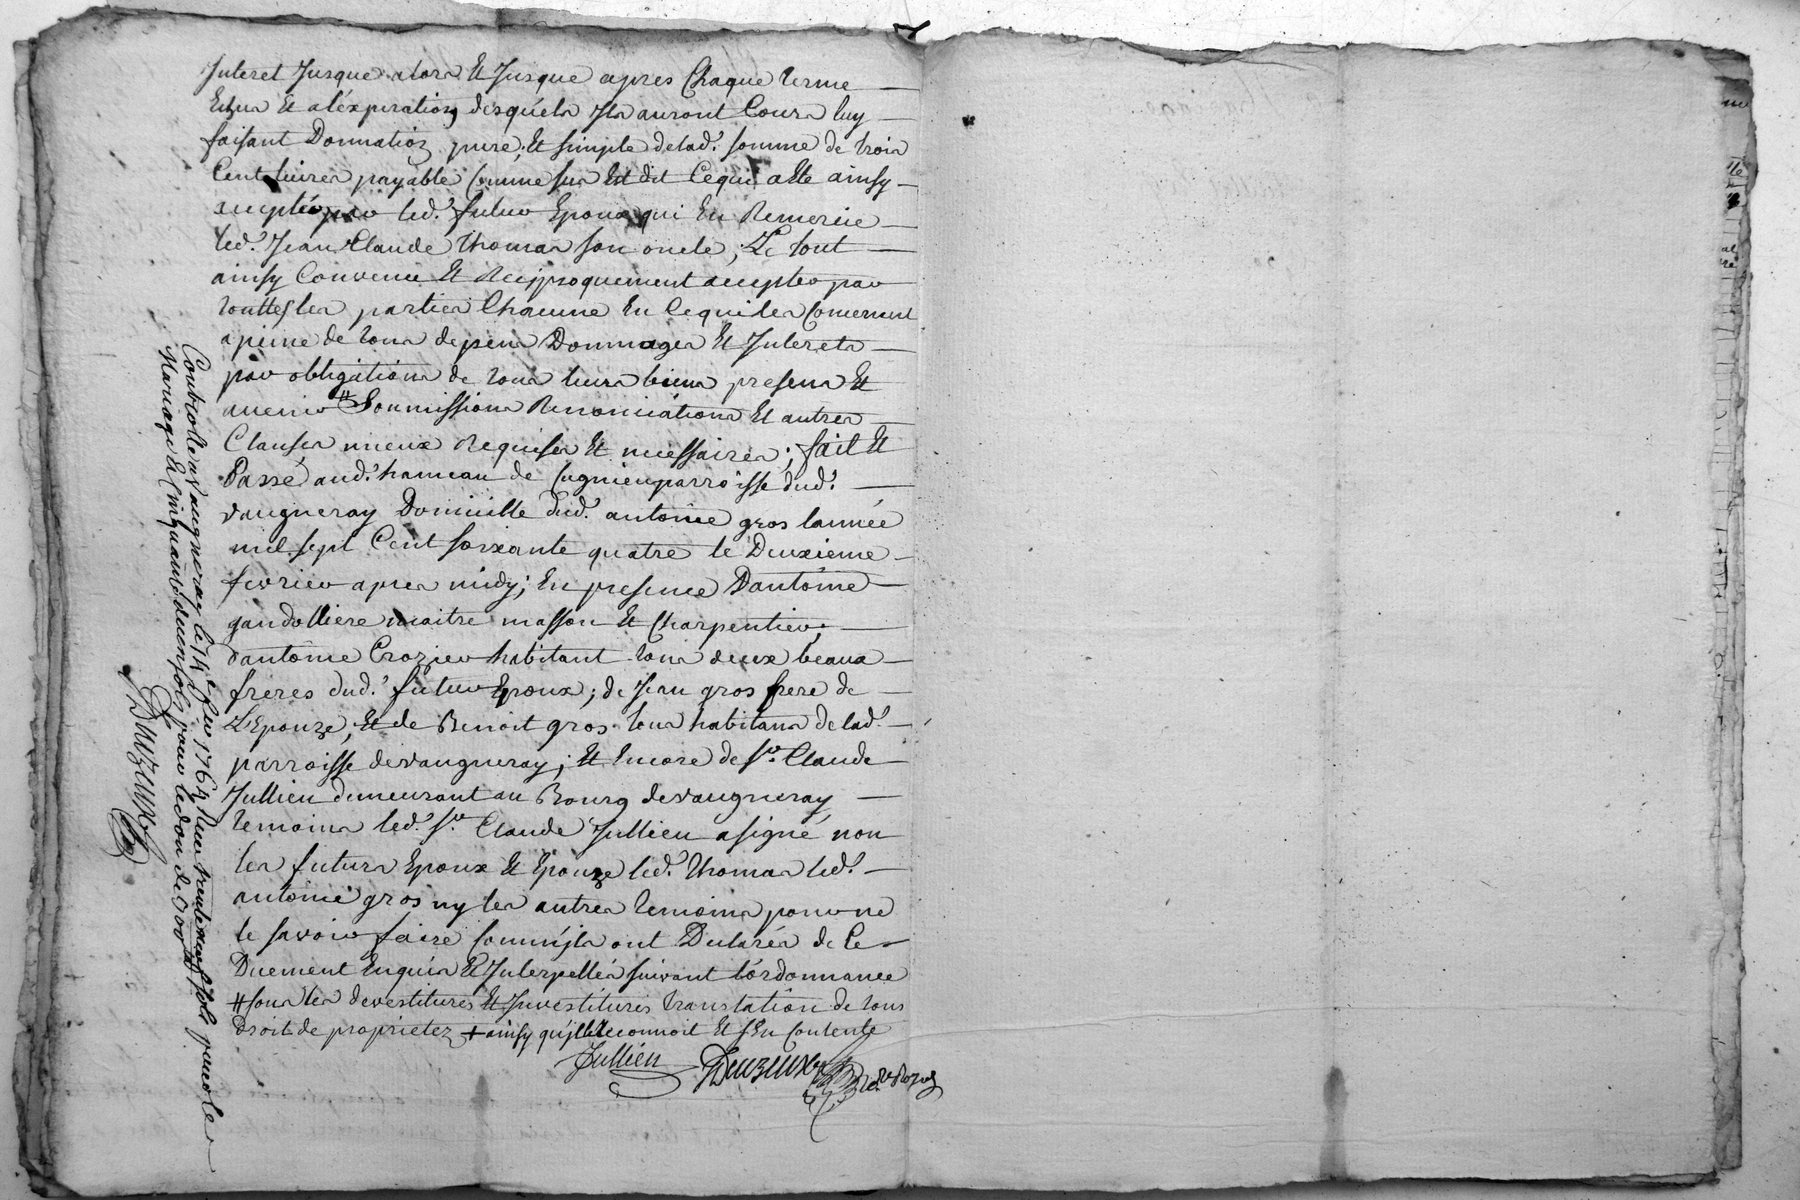 Interet Jusque alors Et Jusque apres Chaque terme
Echu Et aléxpiration désquéls Ils auront Cours luy
faisant Donnation pure, Et simple delad.' somme de trois
Cent livres payable Comme sus Est dit Cequi a Eté ainsy
accepté par led.' futur Epoux qui En Remercie
led.' Jean Claude thomas son oncle; Le tout
ainsy Convenu Et Reciproquement accepter par
touttes les parties Chacune En Cequi les Concernent
a peine de tous depens Dommages Et Interets
par obligations de tous leurs biens presens Et
avenir # Soumissions Renonciations Et autres
Clauses mieux Requises Et necessaires; fait Et
Passé aud.' hameau de parroisse dud.'
vaugneray Domicille dud.' antoine gros lannée
mil sept Cent soixante quatre le Deuxieme
fevrier apres midy; En presence Dantoine
gandolliere maitre masson Et Charpentier;
dantoine Crozier habitant tous deux beaux
freres dud.' futur Epoux; de Jean gros frere de
L'Epouze; Et de Benoit gros tous habitans delad.'
parroisse devaugneray; Et Encore de Sr. Claude
Jullien demeurant au Bourg devaugneray
temoins led.' Sr. Claude Jullien a signé non
les futurs Epoux Et Epouze led.' thomas led.'
antoine gros ny les autres temoins pour ne
le savoir faire Comm'ils ont Declarés de Ce
Duement Enquis Et Interpellés suivant l'ordonnance
# sous les devestitures Et Investitures translation de tous
droit de proprietez + ainsy qu'il le Reconnoit Et s'En Contente
Jullien Dauzeux
Controllé a vaugneray le 14e fevr 1764 Reçu trente neuf sols pour le
Mariage Et Cinquante deux sols pour le don de 300 tt
Dauzeux